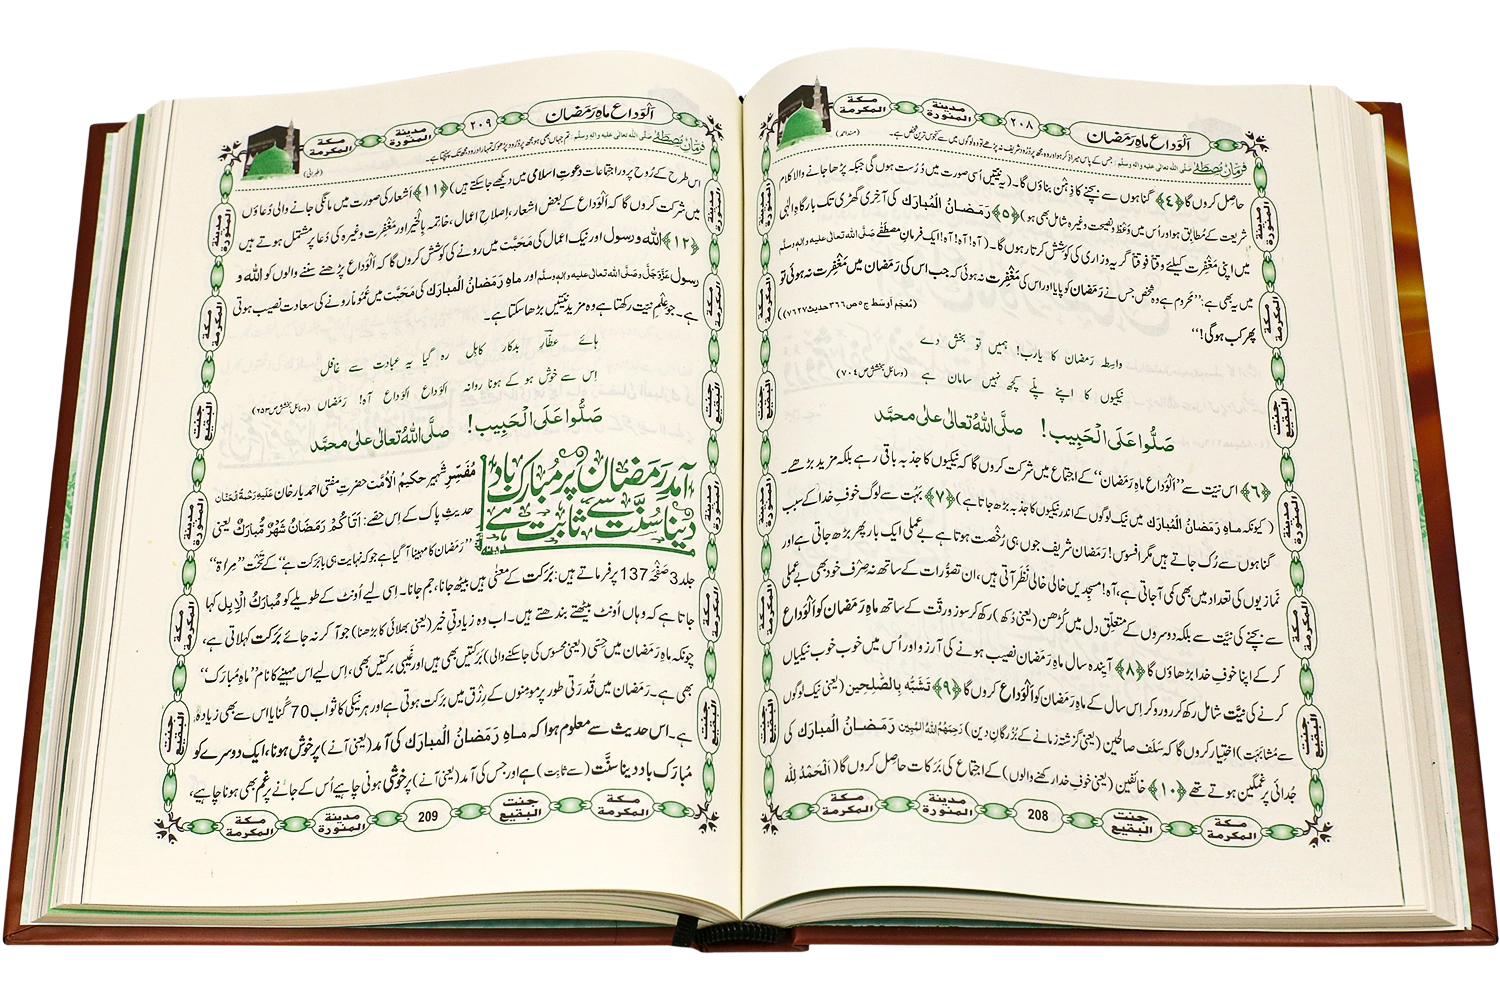 اَلْوَداع ماہِ رَمَضان
٢٠٨
مدينة المنورة
مكة المكرمة
فرمانِ مُصطَفٰے صلَّی اللہ تعالٰی علیہ واٰلہٖ وسلَّم: جس کے پاس میرا ذِکر ہوا اور وہ مجھ پر دُرُود شریف نہ پڑھے تو وہ لوگوں میں سے کنجوس ترین شخص ہے۔ (مسند احمد)
حاصل کروں گا ﴿٤﴾ گناہوں سے بچنے کا ذِہن بناؤں گا۔ (یہ نیتیں اُسی صورت میں دُرُست ہوں گی جبکہ پڑھا جانے والا کلام
شریعت کے مُطابِق ہو اور اُس میں وَعْظ و نصیحت وغیرہ شامل بھی ہو) ﴿٥﴾ رَمَضانُ الْمُبارَک کی آخِری گھڑی تک بارگاہِ الٰہی
میں اپنی مَغْفِرت کیلئے وَقتاً فَوَقتاً گِریہ وزاری کی کوشش کرتا رہوں گا۔ (آہ! آہ! آہ! ایک فرمانِ مصطَفٰے صَلَّی اللہ تعالٰی علیہ واٰلہٖ وسلَّم
میں یہ بھی ہے: ’’محروم ہے وہ شخص جس نے رَمَضان کو پایا اور اس کی مَغْفِرت نہ ہوئی کہ جب اس کی رَمَضان میں مَغْفِرت نہ ہوئی تو
پھر کب ہوگی!‘‘ (مُعجَم اَوسَط ج٥ ص٣٦٦ حدیث٧٦٢٧))
واسِطہ رَمَضان کا یارب! ہمیں تو بخش دے
نیکیوں کا اپنے پلّے کچھ نہیں سامان ہے (وسائلِ بخشش ص٧٠٤)
صَلُّوا عَلَی الْحَبِیب! صلَّی اللہُ تعالٰی علٰی محمَّد
﴿٦﴾ اس نیّت سے ’’اَلْوَداع ماہِ رَمَضان‘‘ کے اجتماع میں شرکت کروں گا کہ نیکیوں کا جذبہ باقی رہے بلکہ مزید بڑھے۔
(کیونکہ ماہِ رَمَضانُ الْمُبارَک میں نیک لوگوں کے اندر نیکیوں کا جذبہ بڑھ جاتا ہے) ﴿٧﴾ بَہُت سے لوگ خوفِ خدا کے سبب
گناہوں سے رُک جاتے ہیں مگر افسوس! رَمَضان شریف جوں ہی رُخْصت ہوتا ہے بے عملی ایک بار پھر بڑھ جاتی ہے اور
نَمازیوں کی تعداد میں بھی کمی آجاتی ہے، آہ! مسجِدیں خالی خالی نَظَر آتی ہیں، ان تصوُّرات کے ساتھ نہ صِرْف خود بھی بے عملی
سے بچنے کی نیّت سے بلکہ دوسروں کے مُتعلِّق دل میں کُڑھن (یعنی دُکھ) رکھ کر سوز و رِقّت کے ساتھ ماہِ رَمَضان کو اَلْوَداع
کر کے اپنا خوفِ خدا بڑھاؤں گا ﴿٨﴾ آیندہ سال ماہِ رَمَضان نصیب ہونے کی آرزو اور اُس میں خوب خوب نیکیاں
کرنے کی نیّت شامل رکھ کر رو رو کر اِس سال کے ماہِ رَمَضان کو اَلْوَداع کروں گا ﴿٩﴾ تَشَبُّہ بِالصّٰلِحین (یعنی نیک لوگوں
سے مُشابَہَت) اختیار کروں گا کہ سَلَف صالحین (یعنی گزَشتہ زمانے کے بُزُرگانِ دین) رَحِمَهُمُ اللهُ الْمُبِين رَمَضانُ الْمُبارَک کی
جُدائی پر غمگین ہوتے تھے ﴿١٠﴾ خائفین (یعنی خوفِ خدا رکھنے والوں) کے اجتماع کی بَرَکات حاصِل کروں گا (اَلْحَمْدُ لِلّٰہ
مكة المكرمة
جنت البقيع
208
مدينة المنورة
مكة المكرمة
اَلْوَداع ماہِ رَمَضان
٢٠٩
مدينة المنورة
مكة المكرمة
فرمانِ مُصطَفٰے صلَّی اللہ تعالٰی علیہ واٰلہٖ وسلَّم: تم جہاں بھی ہو مجھ پر دُرُود پڑھو کہ تمہارا دُرُود مجھ تک پہنچتا ہے۔ (طبرانی)
اس طرح کے رُوح پرور اجتماعات دعوتِ اسلامی میں دیکھے جاسکتے ہیں) ﴿١١﴾ اَشعار کی صورت میں مانگی جانے والی دُعاؤں
میں شرکت کروں گا کہ اَلْوَداع کے بعض اشعار، اِصلاحِ اعمال، خاتِمہ بِالْخیر اور مَغْفِرت وغیرہ کی دُعا پر مُشتمل ہوتے ہیں
﴿١٢﴾ اللہ و رسول اور نیک اعمال کی مَحَبَّت میں رونے کی کوشش کروں گا کہ اَلْوَداع پڑھنے سننے والوں کو اللہ و
رسول عَزَّوَجَلَّ وصَلَّی اللہ تعالٰی علیہ واٰلہٖ وسلَّم اور ماہِ رَمَضانُ الْمُبارَک کی مَحَبَّت میں عُمُوماً رونے کی سعادت نصیب ہوتی
ہے۔ جو عِلْمِ نیّت رکھتا ہے وہ مزید نیّتیں بڑھا سکتا ہے۔
ہائے عطّارِ بدکار کاہِل رہ گیا یہ عبادت سے غافل
اِس سے خوش ہو کے ہونا روانہ اَلْوَداع اَلْوَداع آہ! رَمَضاں (وسائلِ بخشش ص٦٥٣)
صَلُّوا عَلَی الْحَبِیب! صلَّی اللہُ تعالٰی علٰی محمَّد
آمدِ رَمَضان پر مُبارَک باد
دینا سُنّت سے ثابت ہے
مُفَسِّرِ شہیر حکیمُ الْاُمَّت حضرتِ مفتی احمد یار خان عَلَیْہِ رَحْمَۃُ الْحَنَّان
حدیثِ پاک کے اِس حصّے: اَتَاكُمْ رَمَضَانُ شَهْرٌ مُّبَارَكٌ یعنی
’’رَمَضان کا مہینا آگیا ہے جو کہ نہایت ہی بابَرَکت ہے‘‘ کے تَحْت ’’مِراٰۃ‘‘
جلد3 صفْحَہ 137 پر فرماتے ہیں: بَرَکت کے معنٰی ہیں بیٹھ جانا، جم جانا۔ اِسی لیے اُونٹ کے طویلے کو مُبارَکُ الْاِبِل کہا
جاتا ہے کہ وہاں اُونٹ بیٹھتے بندھتے ہیں۔ اب وہ زیادتیِ خیر (یعنی بھلائی کا بڑھنا) جو آ کر نہ جائے بَرَکت کہلاتی ہے،
چونکہ ماہِ رَمَضان میں حِسّی (یعنی محسوس کی جاسکنے والی) بَرَکتیں بھی ہیں اور غَیبی بَرَکتیں بھی، اِس لیے اس مہینے کا نام ’’ماہِ مُبارَک‘‘
بھی ہے۔ رَمَضان میں قُدْرَتی طور پر مومِنوں کے رِزْق میں بَرَکت ہوتی ہے اور ہر نیکی کا ثواب 70 گُنا یا اس سے بھی زیادہ
ہے۔ اس حدیث سے معلوم ہوا کہ ماہِ رَمَضانُ الْمُبارَک کی آمد (یعنی آنے) پر خوش ہونا، ایک دوسرے کو
مُبارَک باد دینا سنَّت (سے ثابِت) ہے اور جس کی آمد (یعنی آنے) پر خوشی ہونی چاہیے اُس کے جانے پر غم بھی ہونا چاہیے،
مكة المكرمة
جنت البقيع
209
مدينة المنورة
مكة المكرمة